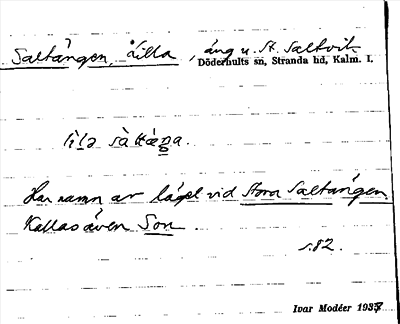 Saltängen, Lilla, äng u. St. Saltvik
Döderhults sn, Stranda hd, Kalm. I.
Har namn av läget vid Stora Saltängen.
Kallas även Son.
s. 82.
Ivar Modéer 1937